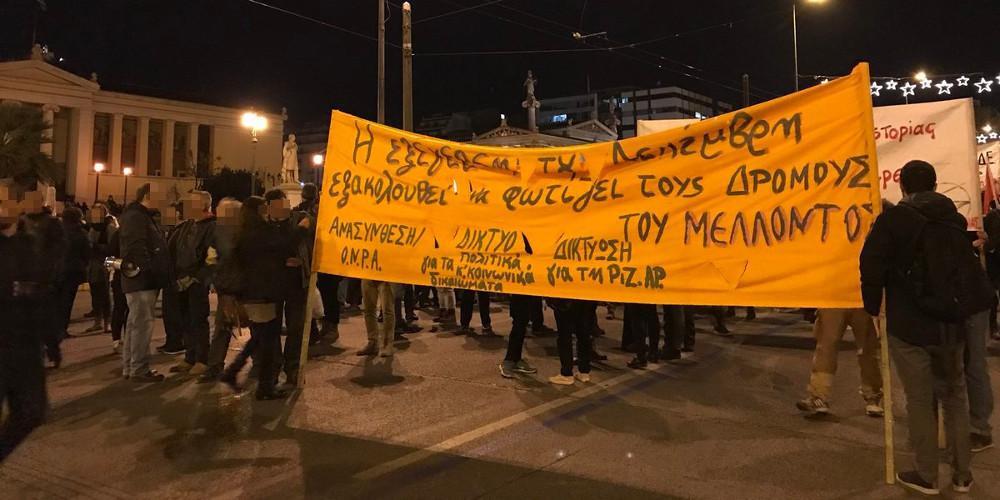 Η εξέγερση της Δεκέμβρη
εξακολουθεί να φωτίζει τους ΔΡΟΜΟΥΣ
ΤΟΥ ΜΕΛΛΟΝΤΟΣ
ΑΝΑΣΥΝΘΕΣΗ/
Ο.Ν.Ρ.Α.
ΔΙΚΤΥΟ
για τα πολιτικά
κ. κοινωνικά
δικαιώματα
ΔΙΚΤΥΩΣΗ
για τη Ρ.ΙΖ.ΑΡ.
ΣΤΟΡΙΑΣ